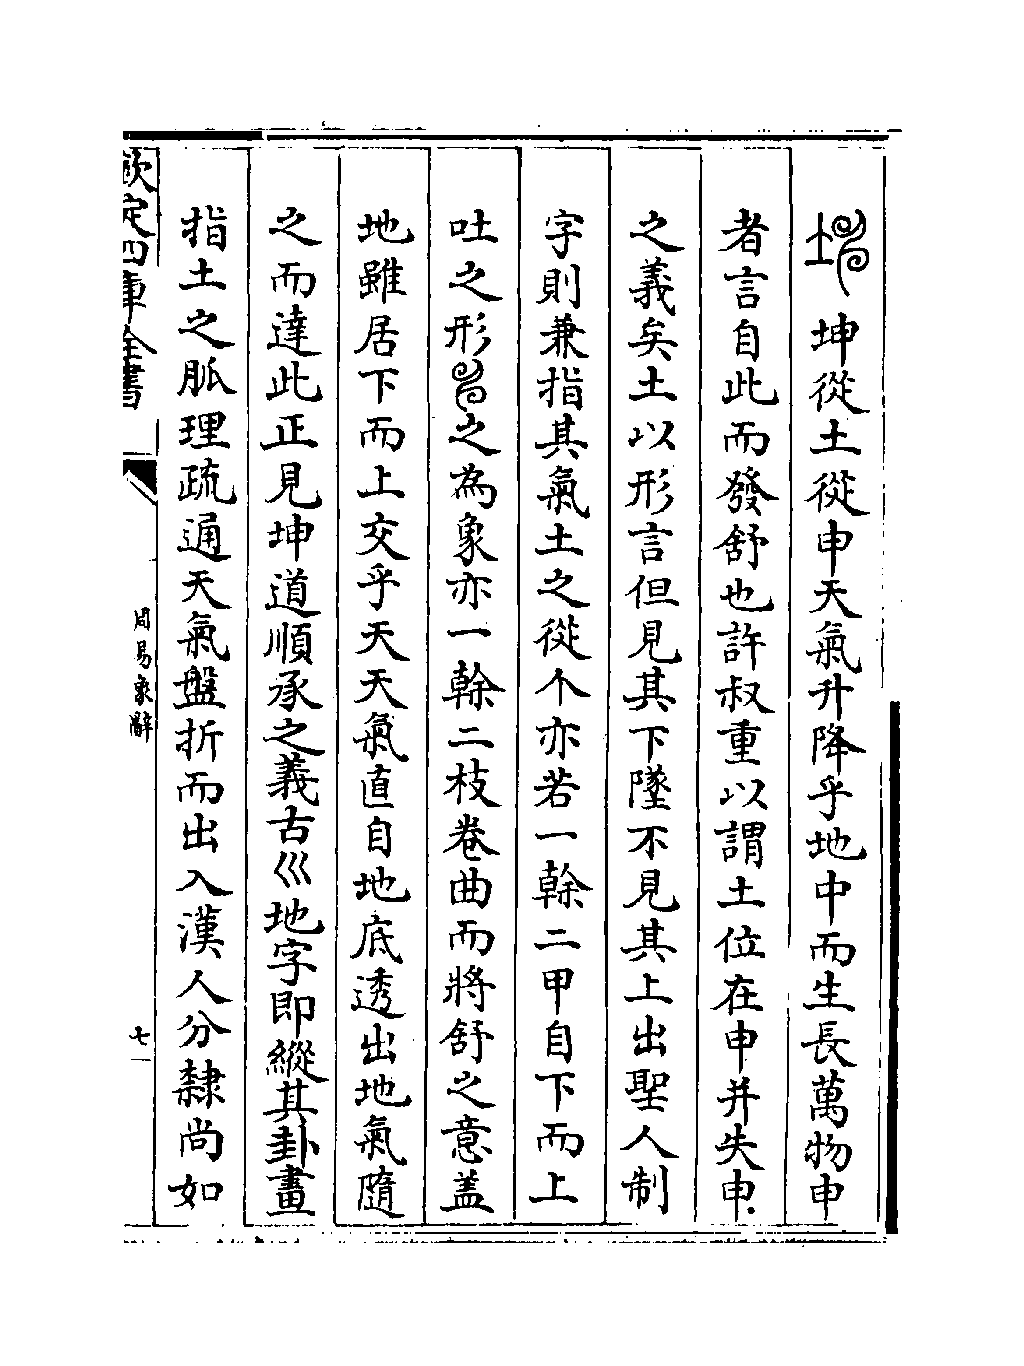 坤從土從申天氣升降乎地中而生長萬物申
者言自此而發舒也許叔重以謂土位在申并失申
之義矣土以形言但見其下墜不見其上出聖人制
字則兼指其氣土之從个亦若一幹二甲自下而上
吐之形之為象亦一幹二枝卷曲而將舒之意蓋
地雖居下而上交乎天天氣直自地底透出地氣隨
之而達此正見坤道順承之義古巛地字即縱其卦畫
指土之脈理疏通天氣盤折而出入漢人分隸尚如
欽定四庫全書
周易象辭
七一